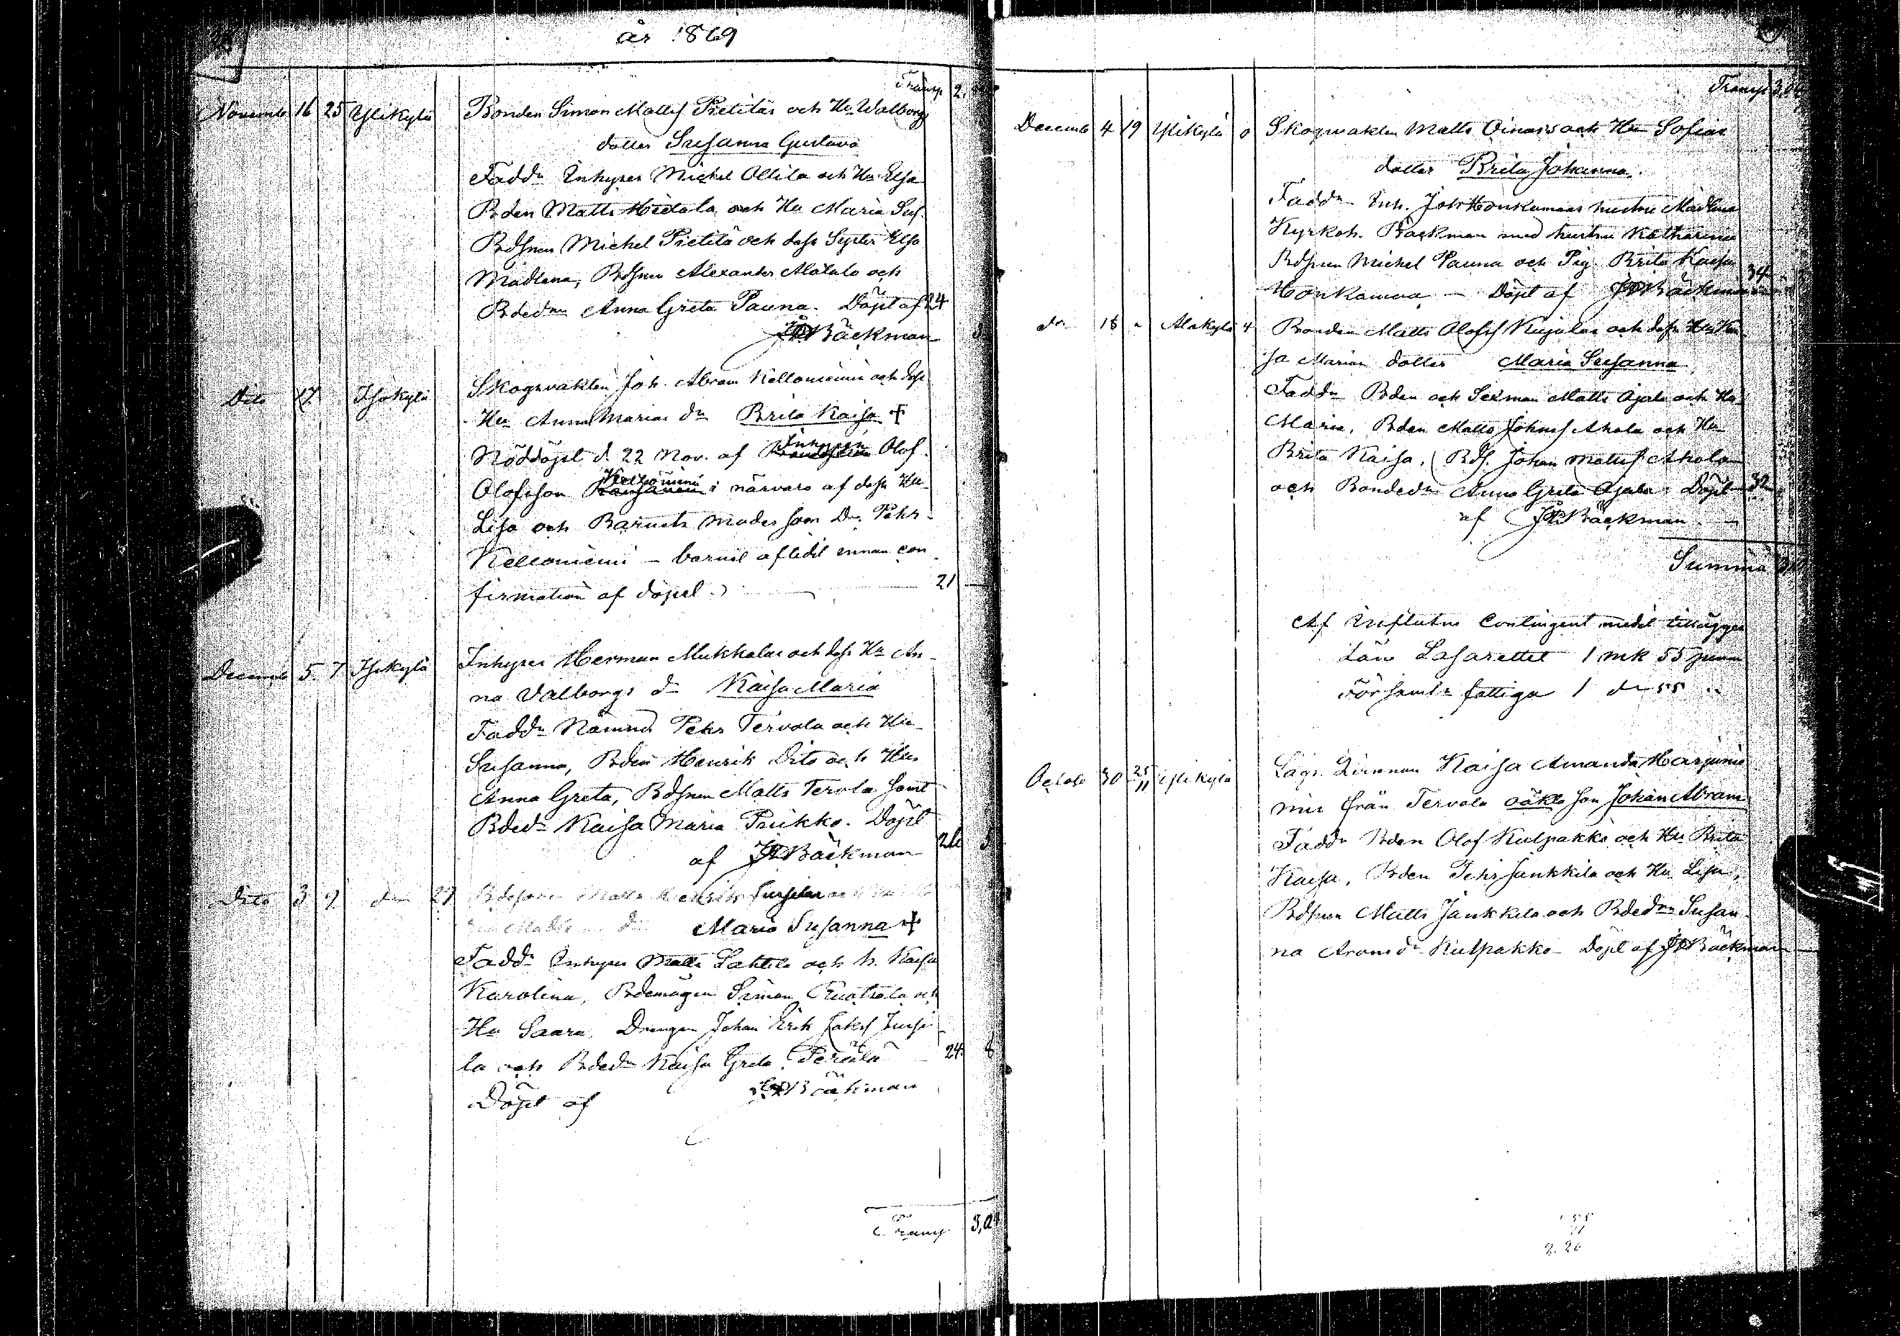 år 1869
Transp 2,
Novemb 16 25 Ylikylä Bonden Simon Mattss Pietiläs och Hu Walborgs
dotter Susanna Gustava
Faddr Inhyses Michel Ollila och Hu Elsa
Bden Matts Hietala och Hu Maria Sus.
Bdsnen Michel Pietilä och dess Syster Elsa
Madlena, Bdsnen Alexander Alatalo och
Bdedrn Anna Greta Pauna. Döpt af 24
JPBäckman
Dito 17 Isokylä Skogsvakten Joh. Abram Kelloniemis och dess
Hu Anna Marias dr Brita Kaisa +
Nöddöpt d. 22 Nov. af Inhyses Olof
Olofsson Kelloniemi i närvaro af dess Hu
Lisa och Barnets moder samt Dr. Pehr
Kelloniemi – barnet aflidit innan con
firmation af döpet. 21
Decemb 5 7 Isokylä Inhyses Herman Mukkalas och dess Hu An
na Valborgs dr Kaisa Maria
Faddr Nämnd Pehr Tervola och Hu
Susanna, Bden Henrik Dito och Hu
Anna Greta, Bdsnen Matts Tervola samt
Bdedr Kaisa Maria Prikko. Döpt
af JPBäckman
Dito 3 9 27 Bdesonen Matts Henrik
dr Maria Susanna +
Faddr Inhyses Matts Lahtela och h. Kaisa
Karolina, Bdemågen Simon och
Hu Saara. Drängen Johan Erik Jakss Jussi
la och Bdedr Kaisa Greta Perälä 24 8
Döpt af JPBäckman
Transp 3,04
Transp 3,04
Decemb 4 19 Ylikylä 0 Skogvakten Matts Oinas's och Hu Sofias
dotter Brita Johanna.
Faddr Inh. Joh Honkamaas hustru Madlena
Kyrkoh. Bäckman med hustru Katharina
Bdsnen Michel Pauna och Pig. Brita Kaisa
Honkamaa – Döpt af JPBäckman 34
do 18 " Alakylä 4 Bonden Matts Olofss Kujalas och dess Hu Kai
sa Marias dotter Maria Susanna
Faddr Bden och Sexman Matts Ojala och Hu
Maria, Bden Matts Johnss Ahola och Hu
Brita Kaisa, Bds. Johan Mattss Ahola
och Bondedr Anna Greta Ojala. Döpt 32
af JPBäckman
Summa
Af influtne Contingent medel tillägges
Läns Lasarettet 1 mk 55 penni
Församls fattiga 1 dr 55 "
Octob 30 25/11 Ylikylä Lägr. Qvinnan Kaisa Amanda Harjunie
mis från Tervola oäkta son Johan Abram
Faddr Bden Olof Kulpakko och Hu Brita
Kaisa, Bden Pehr Jankkila och Hu Lisa,
Bdsnen Matts Jankkila och Bdedrn Susan
na Aronsdr Kulpakko – Döpt af JPBäckman
2.26